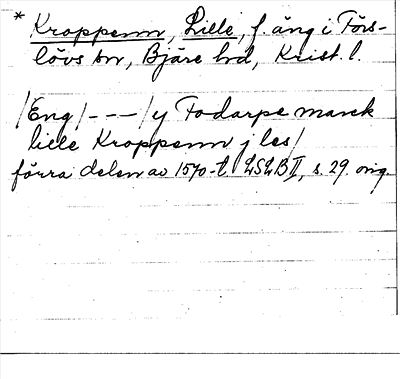 * Kroppenn, Lille, f. äng i Förs-
lövs sn, Bjäre hd, Krist. l.
/Eng/ - - - /y Fodarpe marck
lille Kroppenn j les/
förra delen av 1570-t. LSLB II, s. 29. orig.